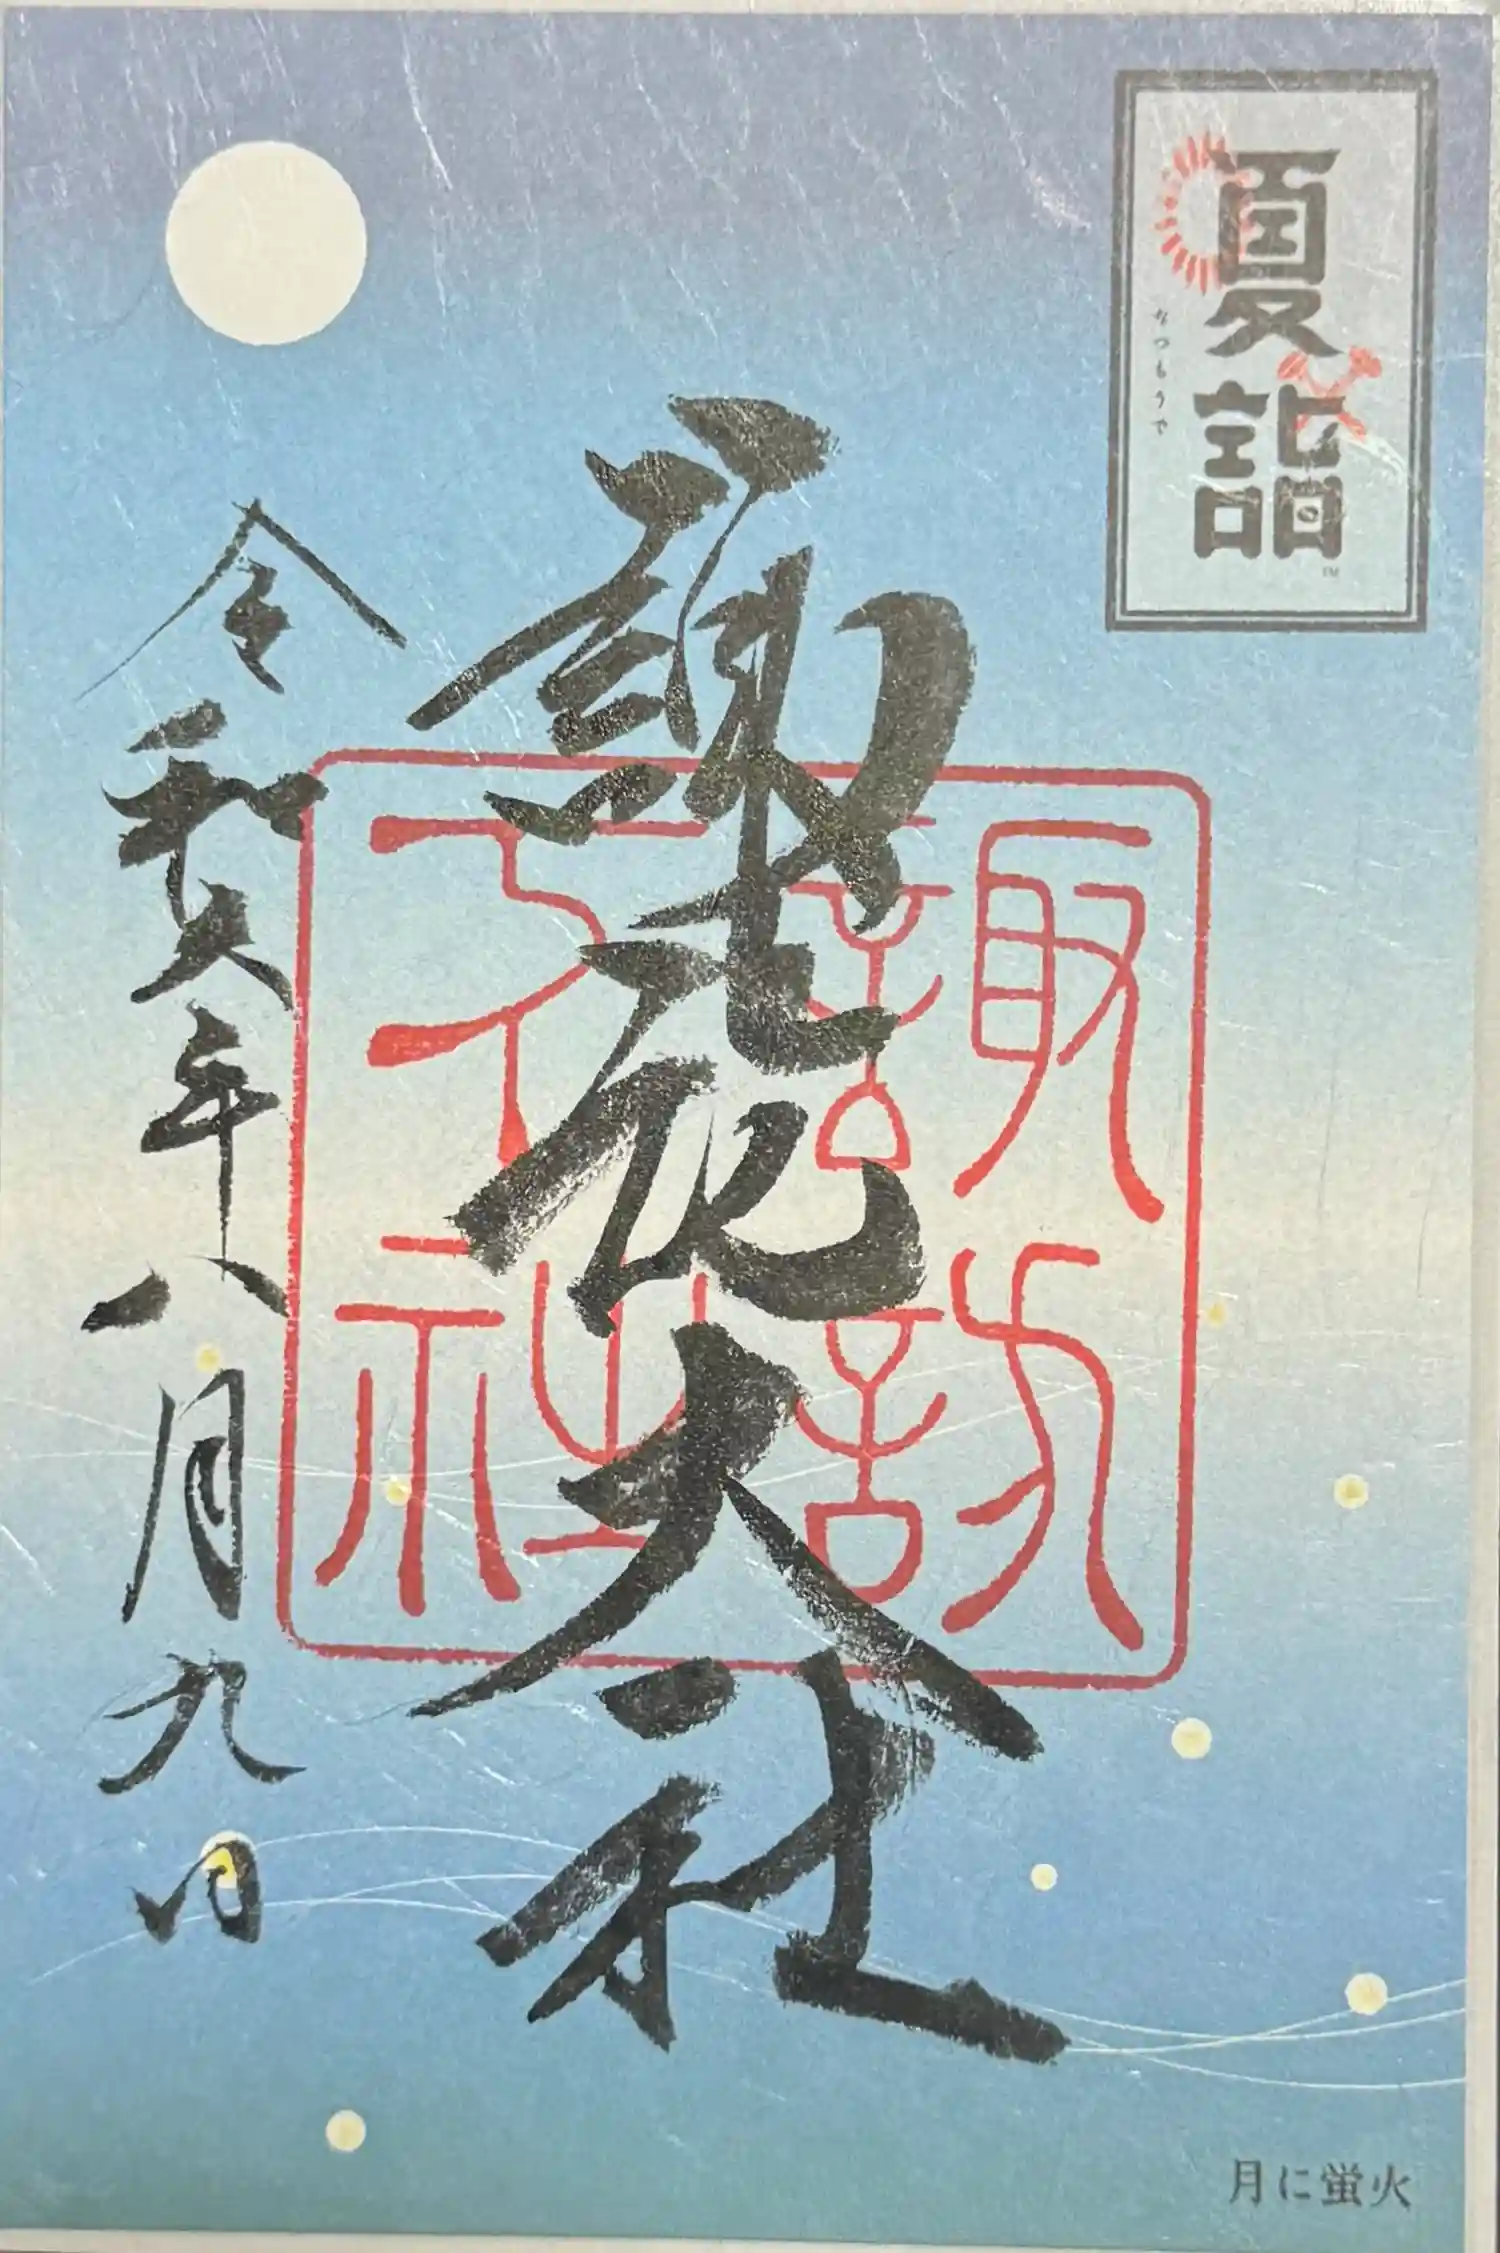 夏詣
なつもうで
TM
諏訪大社
諏訪大社
令和六年八月九日
月に蛍火